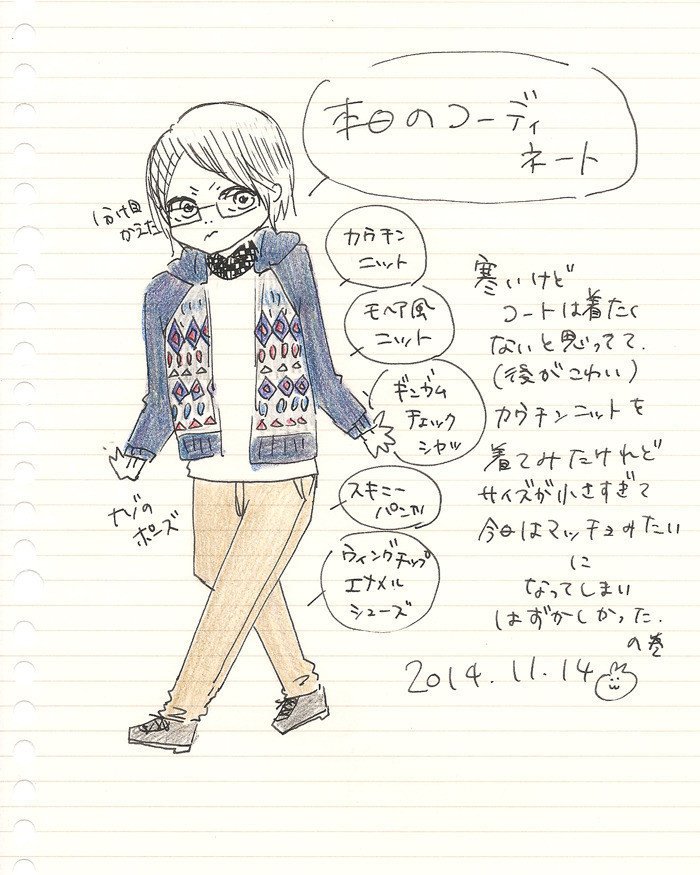 本日のコーディ
ネート
分け目
かえた
カウチン
ニット
モヘア風
ニット
ギンガム
チェック
シャツ
スキニー
パンツ
ウィングチップ
エナメル
シューズ
ナゾの
ポーズ
寒いけど
コートは着たく
ないと思ってて.
(後がこわい)
カウチンニットを
着てみたけれど
サイズが小さすぎて
今日はマッチョみたい
に
なってしまい
はずかしかった.
の巻
2014.11.14